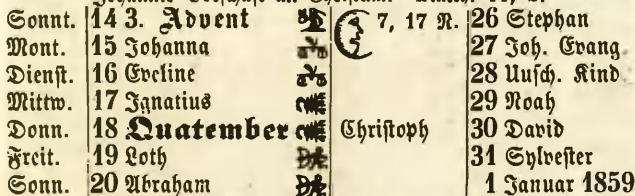 Sonnt. 14 3. Advent 7, 17 N. 26 Stephan
Mont. 15 Johanna 27 Joh. Evang
Dienst. 16 Eveline 28 Unsch. Kind
Mittw. 17 Ignatius 29 Noah
Donn. 18 Quatember Christoph 30 David
Freit. 19 Loth 31 Sylvester
Sonn. 20 Abraham 1 Januar 1859